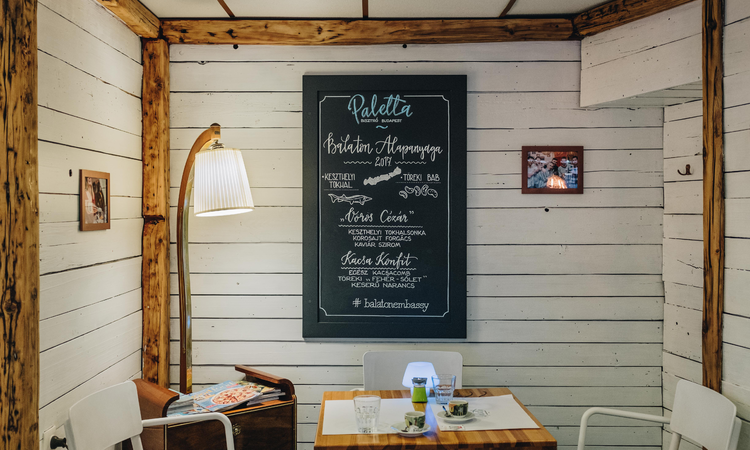 Paletta
BISZTRÓ BUDAPEST
Balaton Alapanyaga
2017
• KESZTHELYI
TOKHAL
• TÖREKI BAB
„Vörös Cézár”
KESZTHELYI TOKHALSONKA
KOROSAJT FORGÁCS
KAVIÁR SZIROM
Kacsa Konfit
EGÉSZ KACSACOMB
TÖREKI „FEHÉR-SÓLET”
KESERŰ NARANCS
# balatonembassy